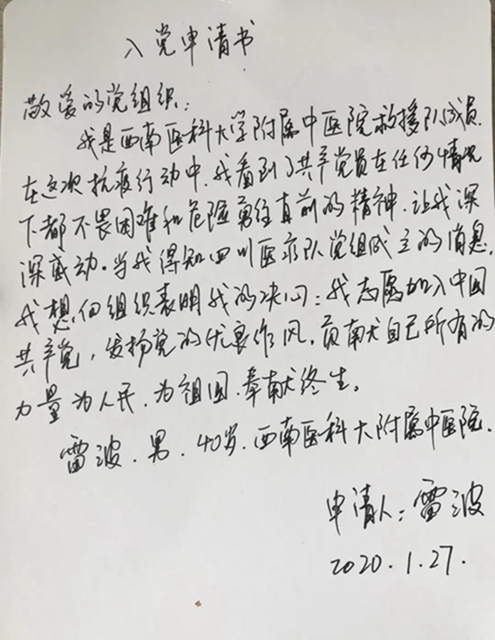 入党申请书
敬爱的党组织：
我是西南医科大学附属中医院救援队成员.
在这次抗疫行动中.我看到了共产党员在任何情况
下都不畏困难和危险勇往直前的精神.让我深
深感动。当我得知四川医疗队党组成立的消息.
我想向组织表明我的决心：我志愿加入中国
共产党，发扬党的优良作风.贡献自己所有的
力量为人民.为祖国.奉献终生。
雷波.男.40岁.西南医科大附属中医院.
申请人：雷波
2020.1.27.